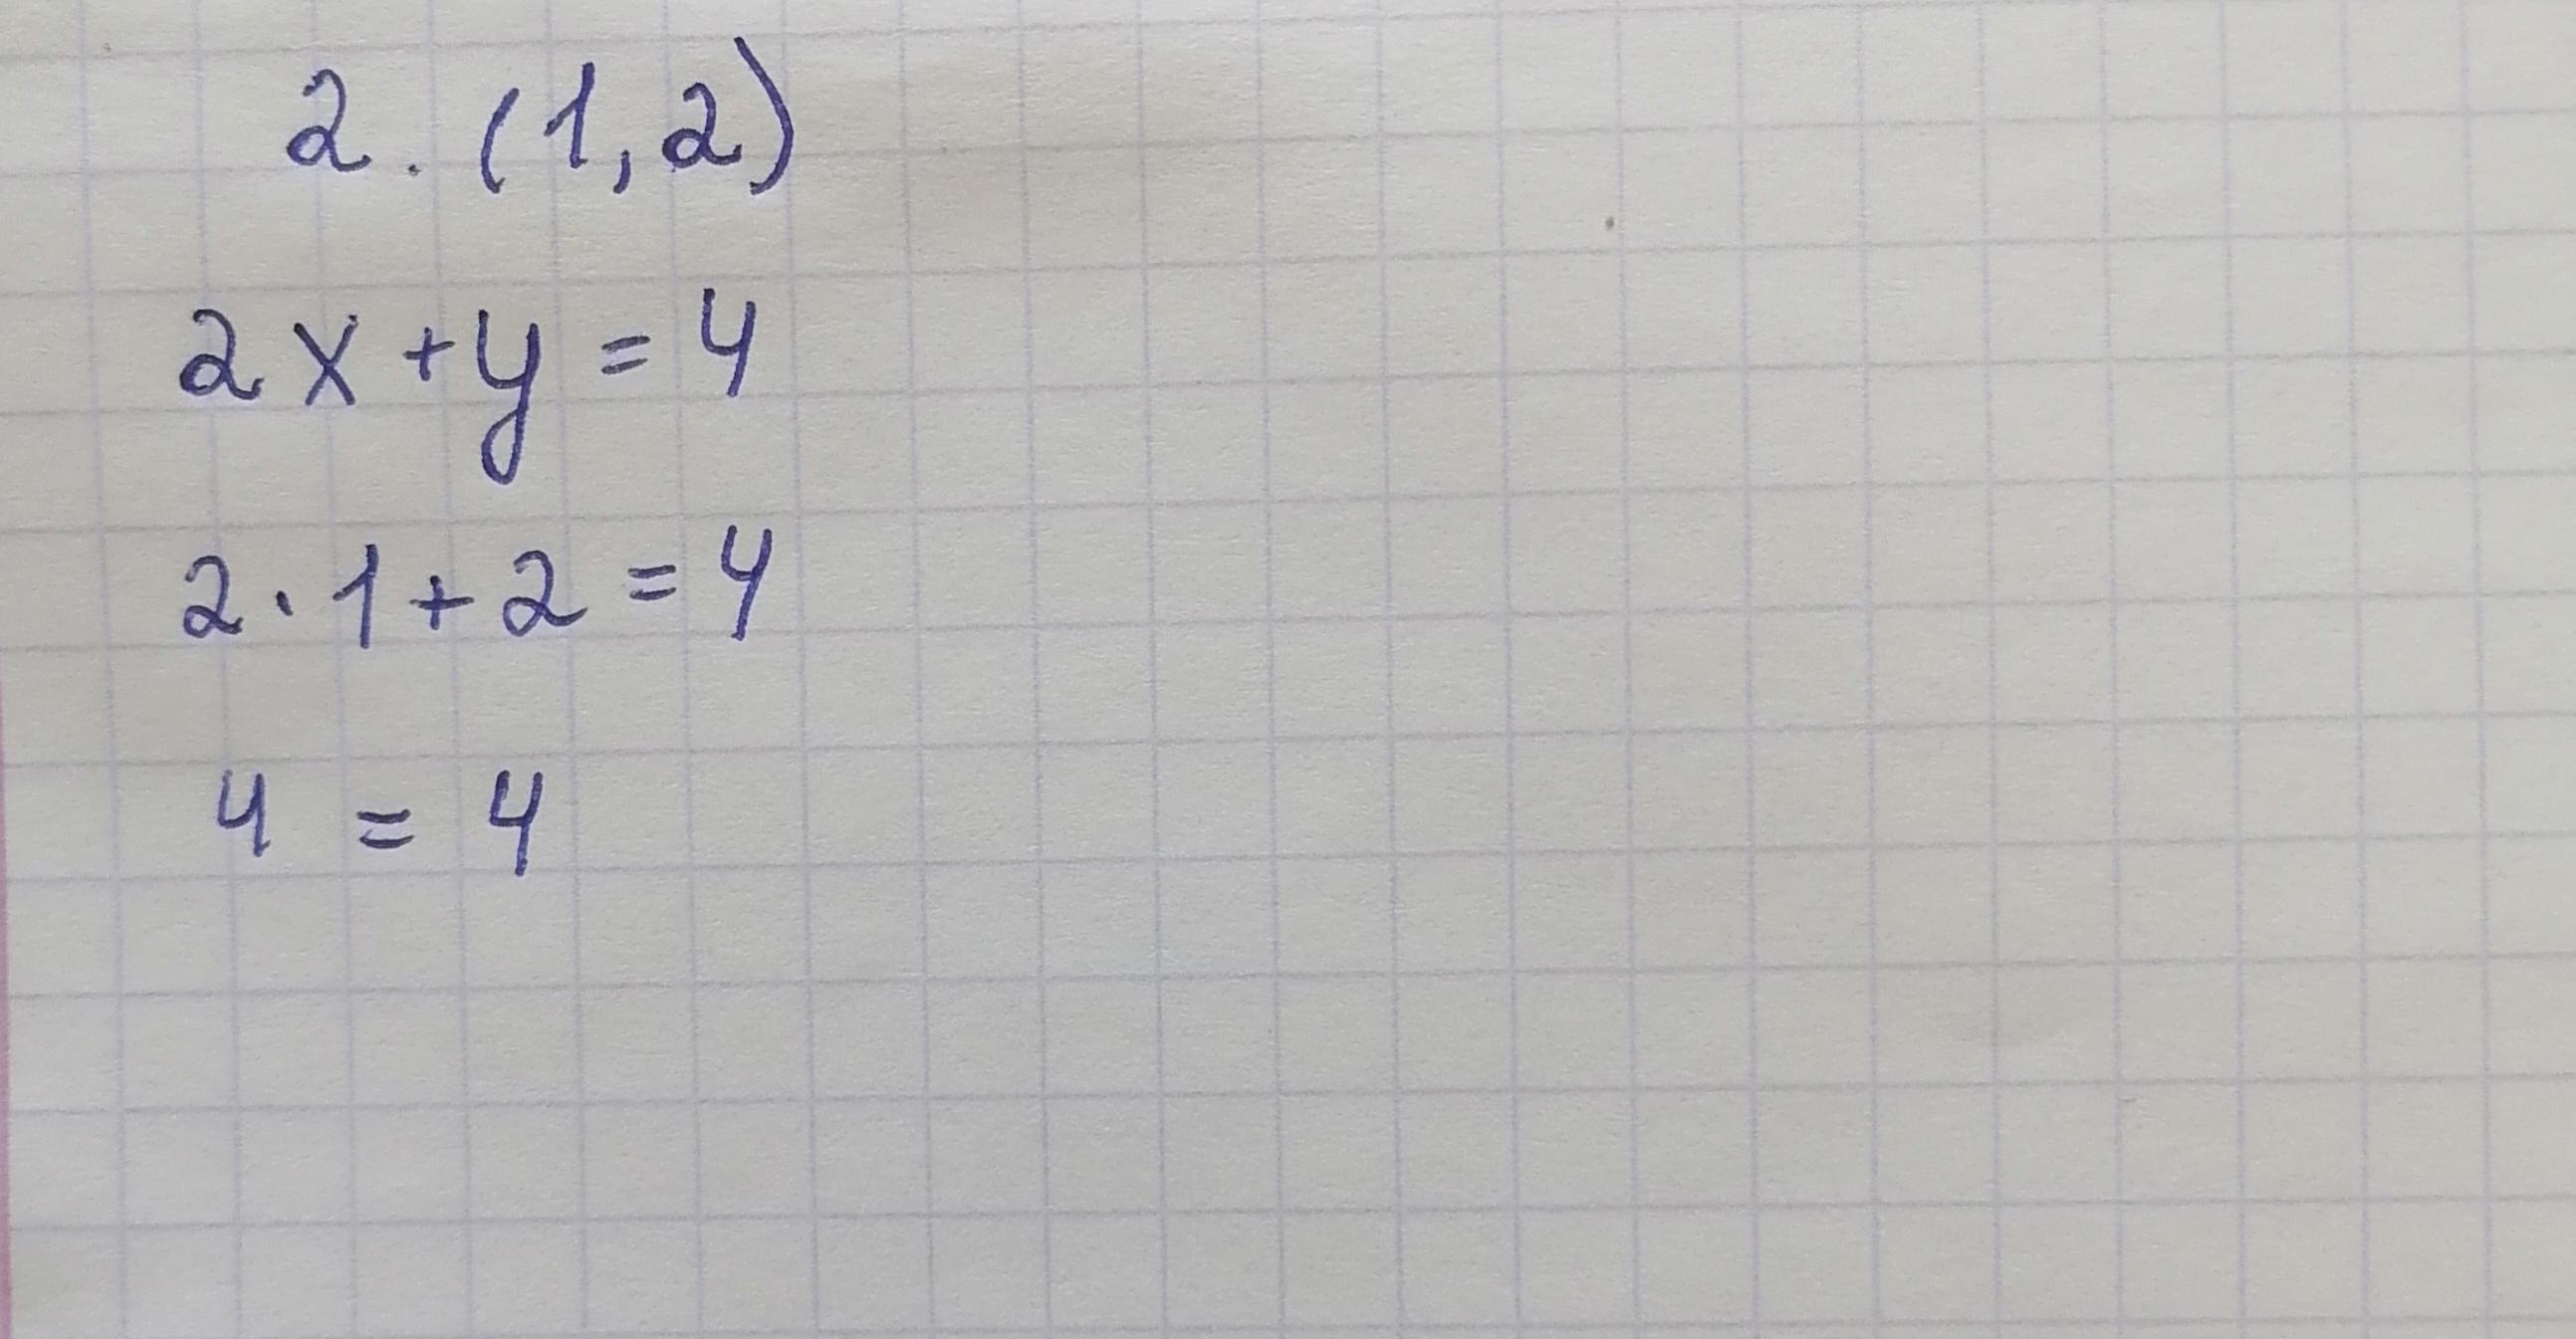 2. (1,2)
2x+y=4
2·1+2=4
4 = 4